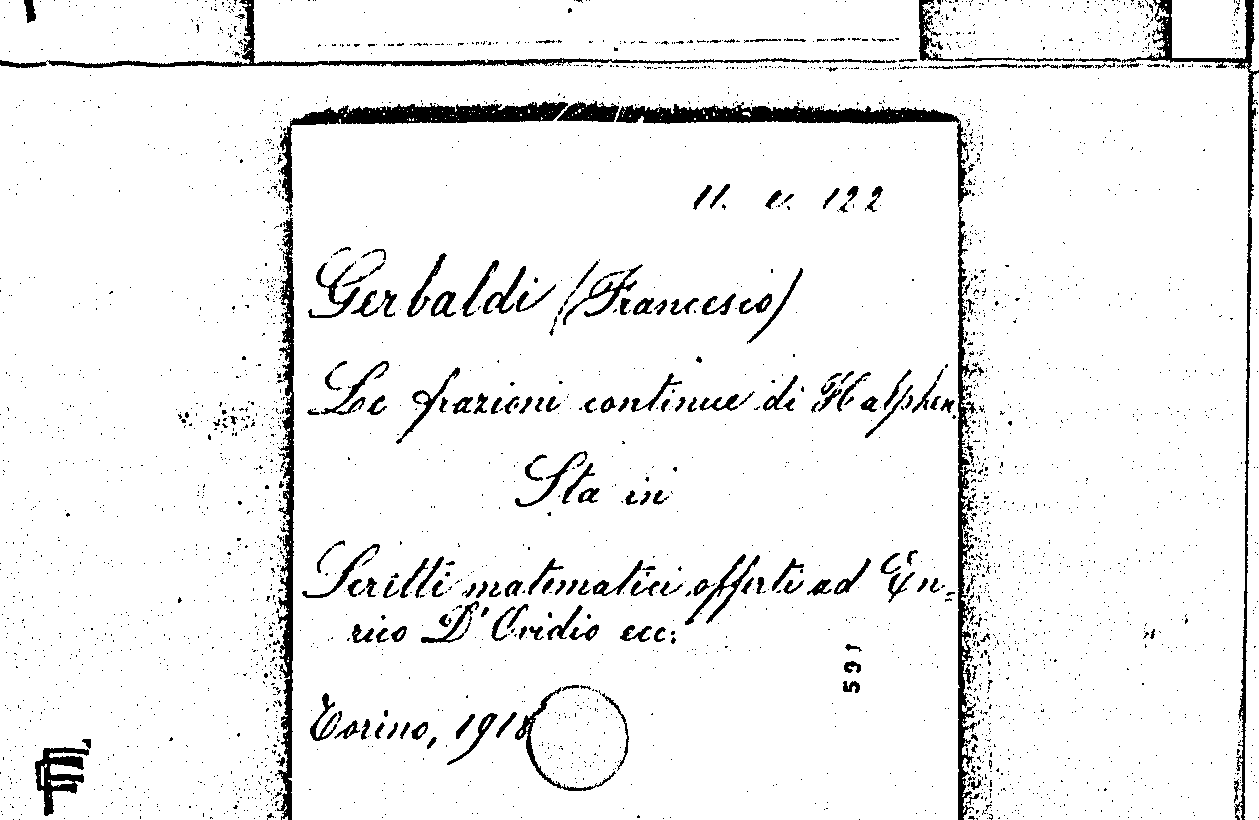 11. c. 122
Gerbaldi (Francesco)
Le frazioni continue di Halphen.
Sta in
Scritti matematici offerti ad En=
rico D'Ovidio ecc.
591
Torino, 1918